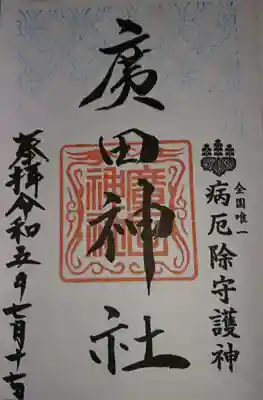 全国唯一
病厄除守護神
廣田神社
廣田神社
奉拝令和五年七月十七日